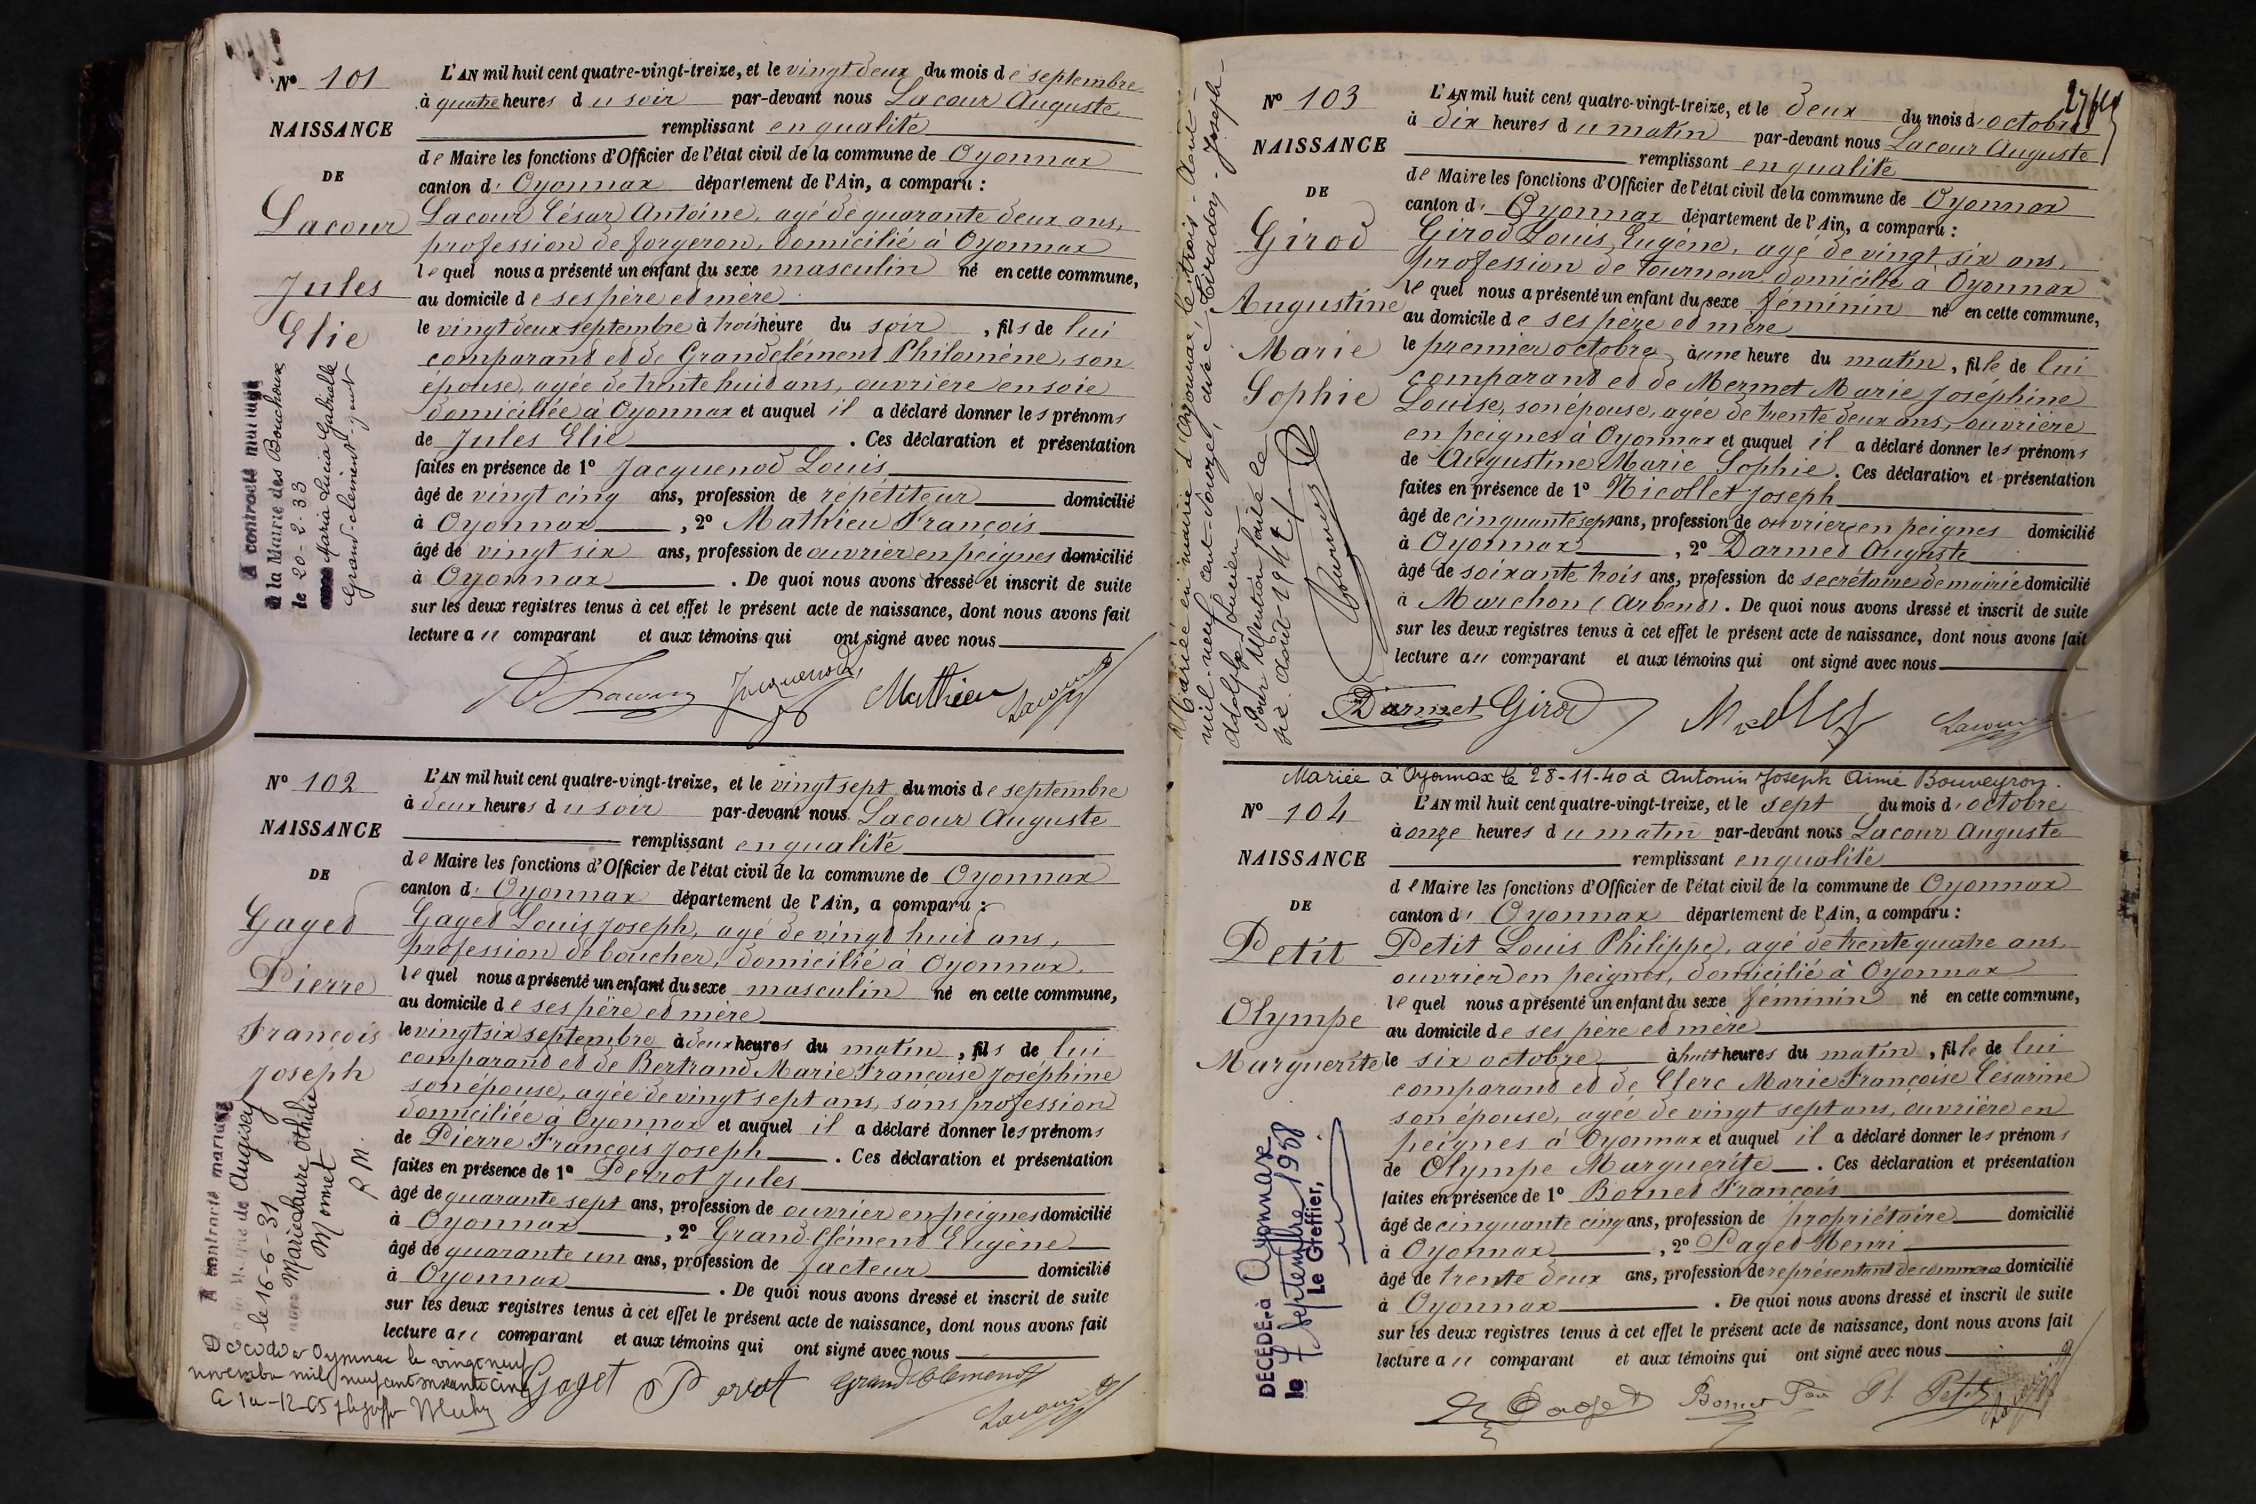 Nº 101
NAISSANCE
DE
Lacour
Jules
Elie
A contracté mariage
à la Mairie des Bouchoux
le 20-2-33
Maria Lucia Gabrielle
Grand clément-
L'AN mil huit cent quatre-vingt-treize, et le vingt deux du mois de septembre
à quatre heures du soir par-devant nous Lacour Auguste
remplissant en qualité
de Maire les fonctions d'Officier de l'état civil de la commune de Oyonnax
canton d' Oyonnax département de l'Ain, a comparu :
Lacour César Antoine, agé de quarante deux ans,
profession de forgeron, domicilié à Oyonnax
lequel nous a présenté un enfant du sexe masculin né en cette commune,
au domicile de ses père et mère
le vingt deux septembre à trois heure du soir, fils de lui
comparant et de Grandclément Philomène, son
épouse, agée de trente huit ans, ouvrière en soie
domiciliée à Oyonnax et auquel il a déclaré donner les prénoms
de Jules Elie. Ces déclaration et présentation
faites en présence de 1º Jacquenod Louis
âgé de vingt cinq ans, profession de répétiteur domicilié
à Oyonnax, 2º Mathieu François
âgé de vingt six ans, profession de ouvrier en peignes domicilié
à Oyonnax. De quoi nous avons dressé et inscrit de suite
sur les deux registres tenus à cet effet le présent acte de naissance, dont nous avons fait
lecture au comparant et aux témoins qui ont signé avec nous
Lacour Jacquenod Mathieu Lacour
Nº 102
NAISSANCE
DE
Gaget
Pierre
François
Joseph
A contracté mariage
de Augisey
le 16-6-31
Marie Laure Othilie
Monnet
P. M.
Décédé à Oyonnax le vingt neuf
novembre mil neuf cent soixante cinq
L'AN mil huit cent quatre-vingt-treize, et le vingt sept du mois de septembre
à deux heures du soir par-devant nous Lacour Auguste
remplissant en qualité
de Maire les fonctions d'Officier de l'état civil de la commune de Oyonnax
canton d' Oyonnax département de l'Ain, a comparu :
Gaget Louis Joseph, agé de vingt huit ans,
profession de boucher, domicilié à Oyonnax,
lequel nous a présenté un enfant du sexe masculin né en cette commune,
au domicile de ses père et mère
le vingt six septembre à deux heures du matin, fils de lui
comparant et de Bertrand Marie Françoise Joséphine
son épouse, agée de vingt sept ans, sans profession
domiciliée à Oyonnax et auquel il a déclaré donner les prénoms
de Pierre François Joseph. Ces déclaration et présentation
faites en présence de 1º Perrot Jules
âgé de quarante sept ans, profession de ouvrier en peignes domicilié
à Oyonnax, 2º Grand-Clément Eugène
âgé de quarante un ans, profession de facteur domicilié
à Oyonnax. De quoi nous avons dressé et inscrit de suite
sur les deux registres tenus à cet effet le présent acte de naissance, dont nous avons fait
lecture au comparant et aux témoins qui ont signé avec nous
Gaget Perrot Grandclément Lacour
Nº 103
NAISSANCE
DE
Girod
Augustine
Marie
Sophie
Mariée en mairie d'Oyonnax, le trois-Août-
mil-neuf cent-douze, avec Tiradon-Joseph-
Adolphe
Pour Mention faite le
août-1912
L'AN mil huit cent quatre-vingt-treize, et le deux du mois d'octobre
à dix heures du matin par-devant nous Lacour Auguste
remplissant en qualité
de Maire les fonctions d'Officier de l'état civil de la commune de Oyonnax
canton d' Oyonnax département de l'Ain, a comparu :
Girod Louis Eugène, agé de vingt six ans,
profession de tourneur, domicilié à Oyonnax
lequel nous a présenté un enfant du sexe féminin né en cette commune,
au domicile de ses père et mère
le premier octobre à une heure du matin, fille de lui
comparant et de Mermet Marie Joséphine
Louise, son épouse, agée de trente deux ans, ouvrière
en peignes à Oyonnax et auquel il a déclaré donner les prénoms
de Augustine Marie Sophie. Ces déclaration et présentation
faites en présence de 1º Nicollet Joseph
âgé de cinquante sept ans, profession de ouvrier en peignes domicilié
à Oyonnax, 2º Darmet Auguste
âgé de soixante trois ans, profession de secrétaire de mairie domicilié
à Marchon (Arbent). De quoi nous avons dressé et inscrit de suite
sur les deux registres tenus à cet effet le présent acte de naissance, dont nous avons fait
lecture au comparant et aux témoins qui ont signé avec nous
Darmet Girod Nicollet Lacour
Mariée à Oyonnax le 28-11-40 à Antonin Joseph Aimé Bouveyron.
Nº 104
NAISSANCE
DE
Petit
Olympe
Marguerite
DÉCÉDÉ à Oyonnax
le 7 septembre 1958
Le Greffier,
L'AN mil huit cent quatre-vingt-treize, et le sept du mois d'octobre
à onze heures du matin par-devant nous Lacour Auguste
remplissant en qualité
de Maire les fonctions d'Officier de l'état civil de la commune de Oyonnax
canton d' Oyonnax département de l'Ain, a comparu :
Petit Louis Philippe, agé de trente quatre ans,
ouvrier en peignes, domicilié à Oyonnax
lequel nous a présenté un enfant du sexe féminin né en cette commune,
au domicile de ses père et mère
le six octobre à huit heures du matin, fille de lui
comparant et de Clerc Marie Françoise Césarine
son épouse, agée de vingt sept ans, ouvrière en
peignes à Oyonnax et auquel il a déclaré donner les prénoms
de Olympe Marguerite. Ces déclaration et présentation
faites en présence de 1º Bornet François
âgé de cinquante cinq ans, profession de propriétaire domicilié
à Oyonnax, 2º Paget Henri
âgé de trente deux ans, profession de représentant de commerce domicilié
à Oyonnax. De quoi nous avons dressé et inscrit de suite
sur les deux registres tenus à cet effet le présent acte de naissance, dont nous avons fait
lecture au comparant et aux témoins qui ont signé avec nous
Paget Bornet Petit Lacour